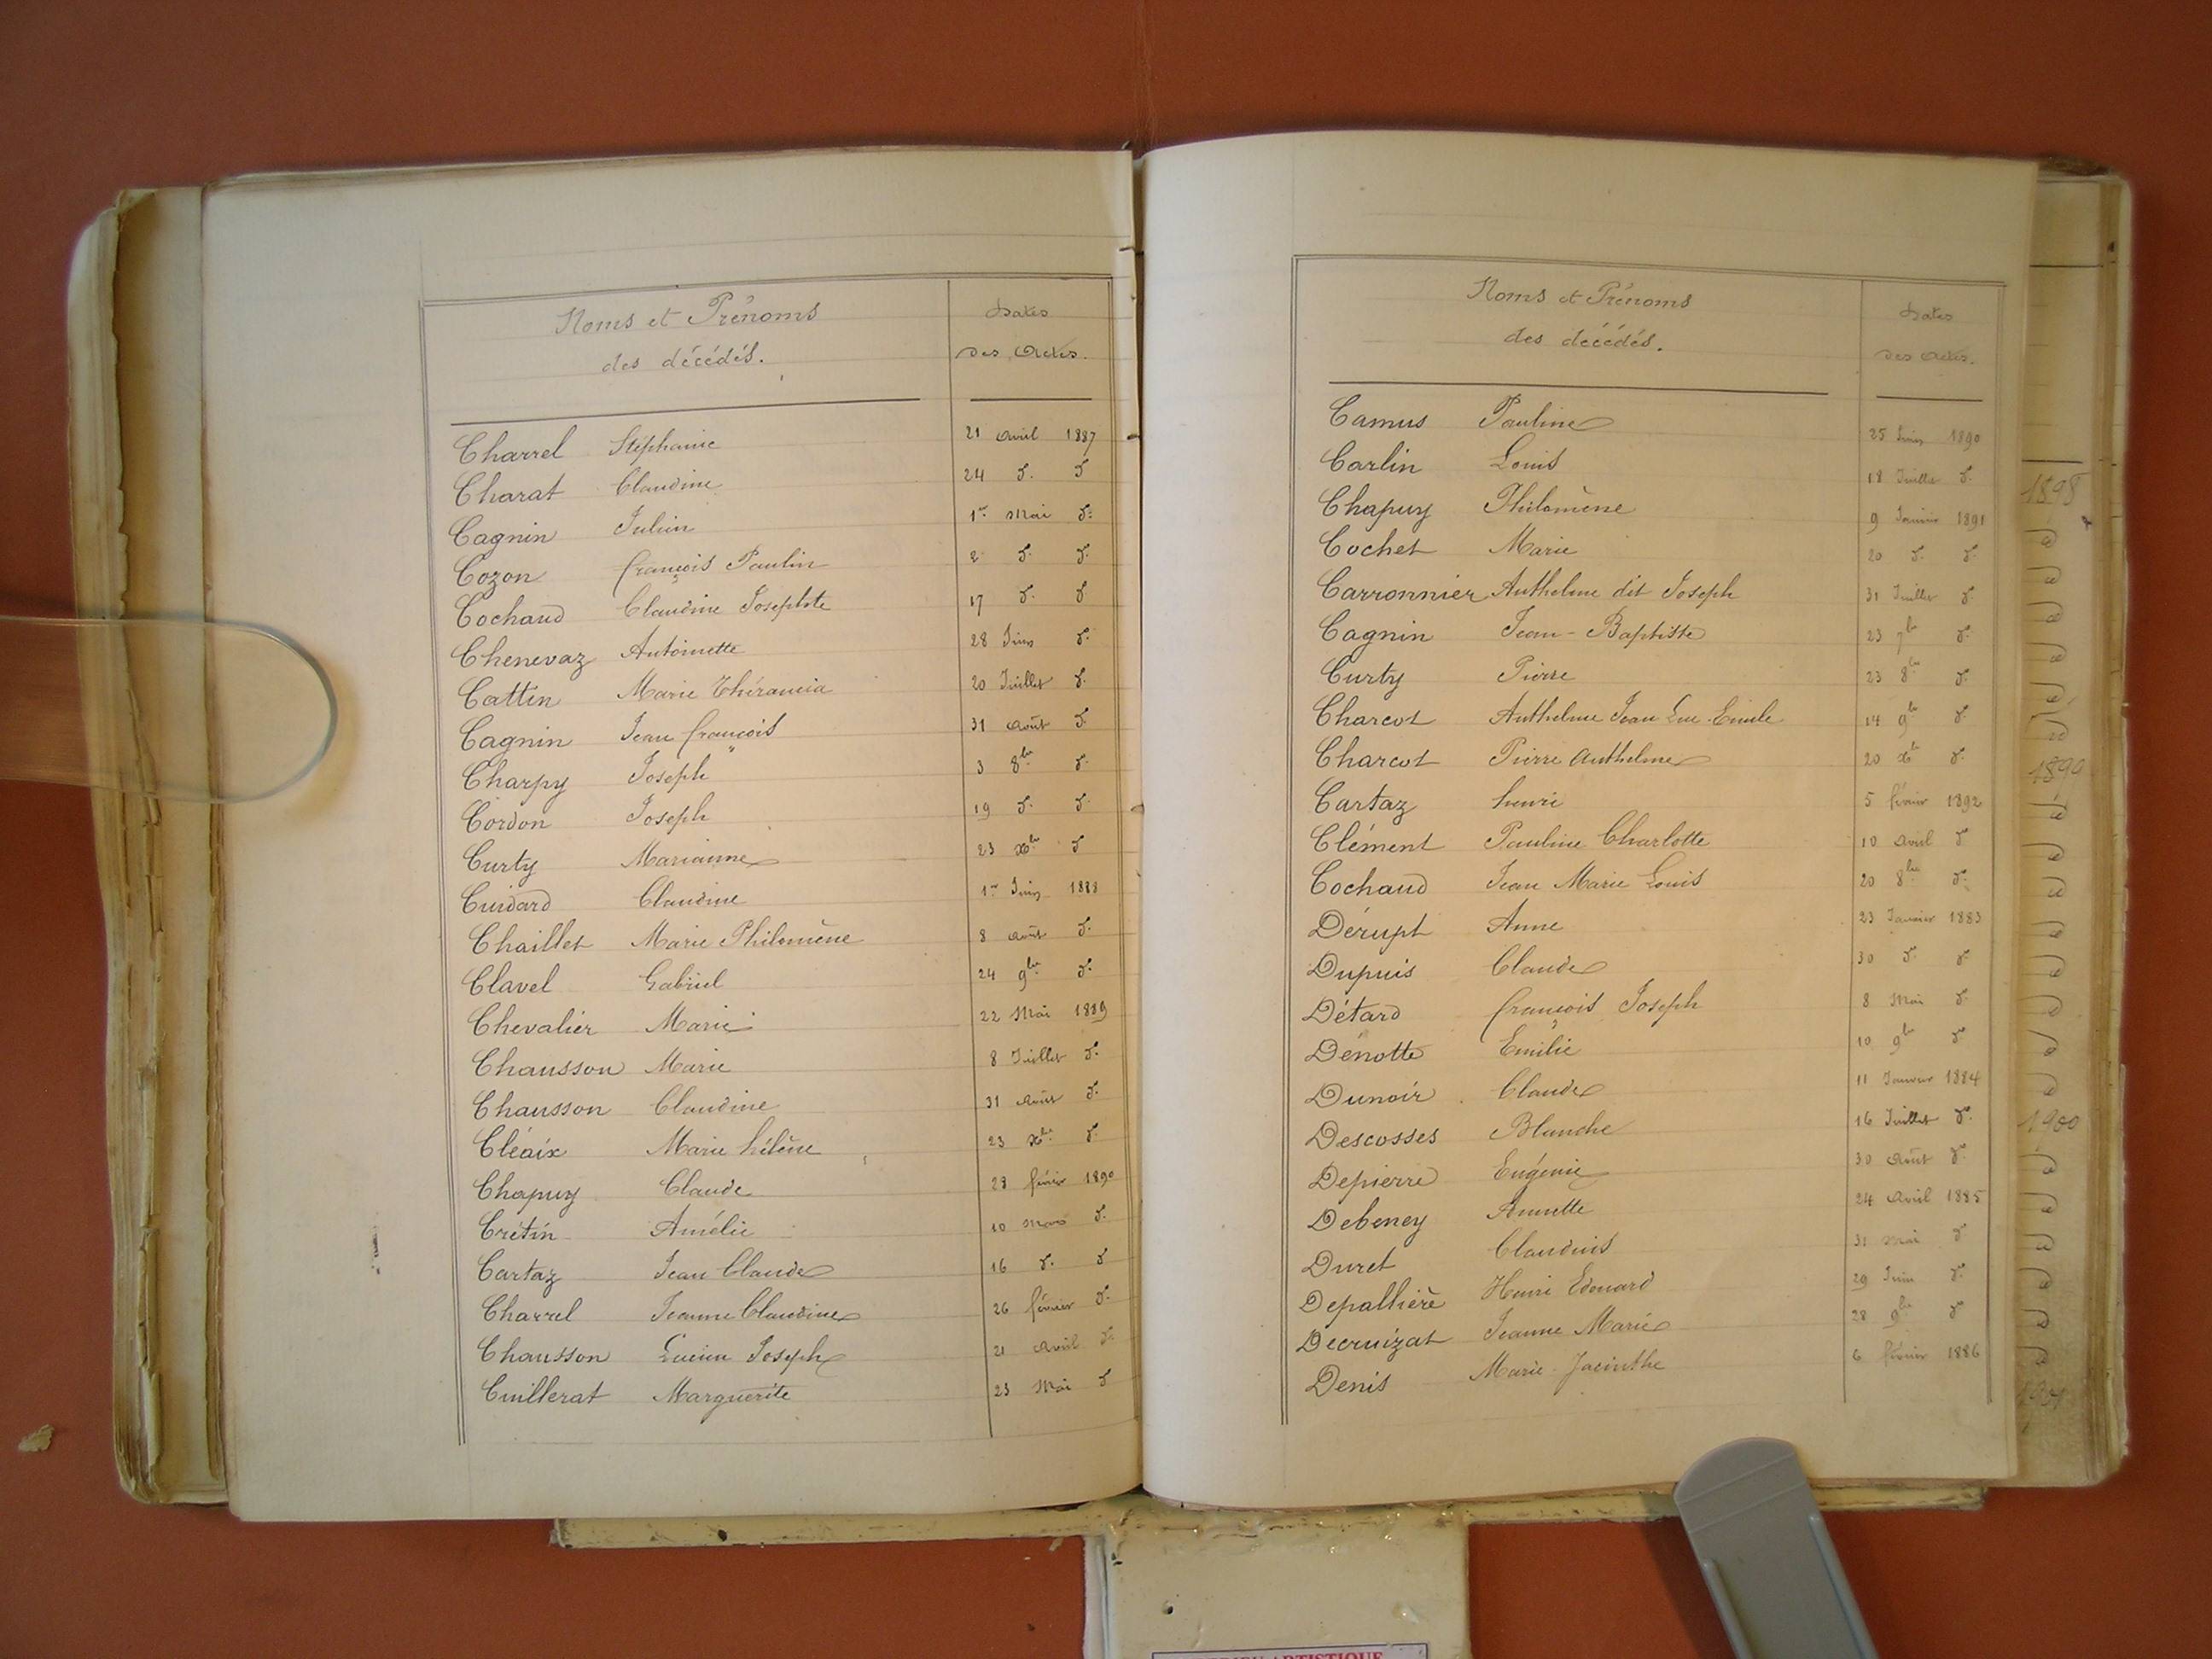 Noms et Prénoms Dates
des décédés. des Actes.
Charrel Stéphanie 21 avril 1887
Charat Claudine 24 d. d
Cagnin Julien 1er Mai d.
Cozon françois Paulin 2 d. d.
Cochaud Claudine Josephte 17 d. d
Chenevaz Antoinette 28 Juin d.
Cattin Marie 20 Juillet d.
Cagnin Jean françois 31 août d.
Charpy Joseph 3 8bre d.
Cordon Joseph 19 d. d.
Curty Marianne 23 Xbre d
Cuidard Claudine 1er Juin 1888
Chaillet Marie Philomène 8 août d.
Clavel Gabriel 24 9bre d.
Chevalier Marie 22 Mai 1889
Chausson Marie 8 Juillet d.
Chausson Claudine 31 Août d.
Cléaix Marie hélène 23 Xbre d.
Chapuy Claude 28 février 1890
Crétin Amélie 10 Mars d.
Cartaz Jean Claude 16 d. d
Charrel Jeanne Claudine 26 février d.
Chausson Lucien Joseph 21 Avril d.
Cuillerat Marguerite 23 Mai d
Noms et Prénoms Dates
des décédés. des Actes.
Camus Pauline 25 Juin 1890
Carlin Louis 18 Juillet d.
Chapuy Philomène 9 Janvier 1891
Cochet Marie 20 d. d.
Carronnier Anthelme dit Joseph 31 Juillet d
Cagnin Jean-Baptiste 23 7bre d.
Curty Pierre 23 8bre d.
Charcot Anthelme Jean Luc Emile 14 9bre d.
Charcot Pierre Anthelme 20 Xbre d.
Cartaz henri 5 février 1892
Clément Pauline Charlotte 10 Avril d
Cochaud Jean Marie Louis 20 8bre d.
Dérupt Anne 23 Janvier 1883
Dupuis Claude 30 d. d
Détard françois Joseph 8 Mai d.
Dénotte Emilie 10 9bre d
Dunoir Claude 11 Janvier 1884
Descosses Blanche 16 Juillet d.
Depierre Eugénie 30 Août d.
Debeney Annette 24 Avril 1885
Duret Claudius 31 Mai d
Depallière Henri Edouard 29 Juin d.
Decruizat Jeanne Marie 28 9bre d
Denis Marie-Jacinthe 6 février 1886
1898
1899
1900